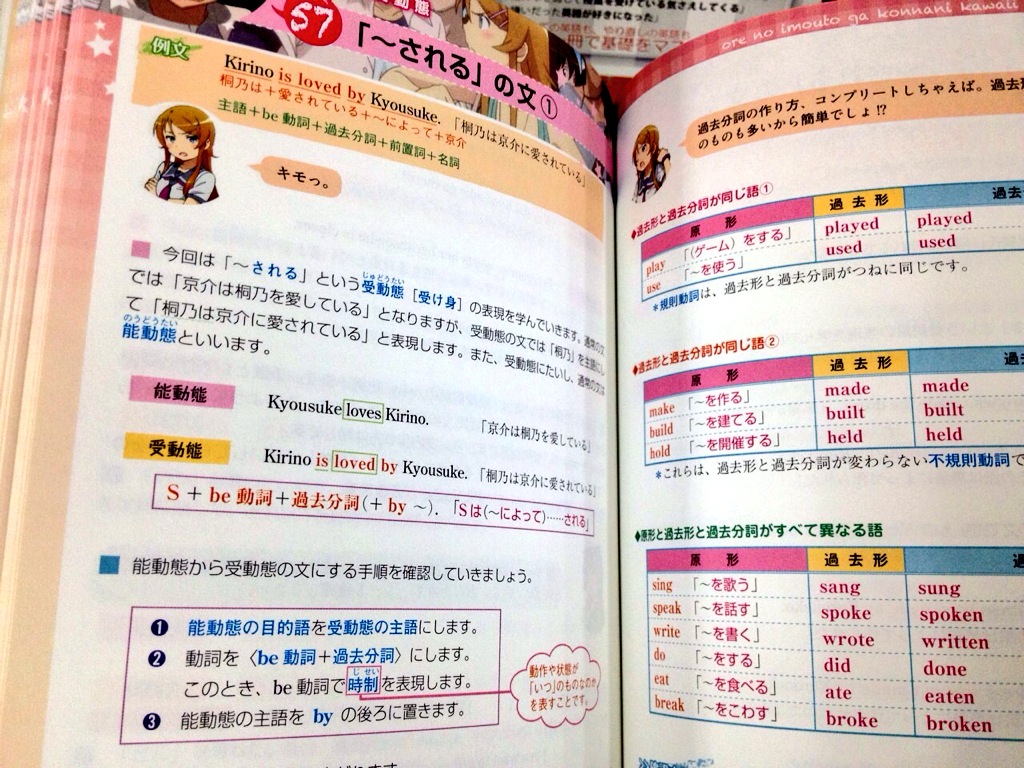 57
「〜される」の文①
例文
Kirino is loved by Kyousuke.「桐乃は京介に愛されている」
桐乃は＋愛されている＋〜によって＋京介
主語＋be 動詞＋過去分詞＋前置詞＋名詞
キモっ。
今回は「〜される」という受動態［受け身］の表現を学んでいきます。通常の文
じゅどうたい
では「京介は桐乃を愛している」となりますが、受動態の文では「桐乃」を主語にし
て「桐乃は京介に愛されている」と表現します。また、受動態にたいし、通常の文は
のうどうたい
能動態といいます。
能動態
Kyousuke loves Kirino.
「京介は桐乃を愛している」
受動態
Kirino is loved by Kyousuke.「桐乃は京介に愛されている」
S + be 動詞＋過去分詞(+ by 〜).「Sは(〜によって)……される」
能動態から受動態の文にする手順を確認していきましょう。
❶ 能動態の目的語を受動態の主語にします。
❷ 動詞を〈be 動詞＋過去分詞〉にします。
じせい
このとき、be 動詞で時制を表現します。
❸ 能動態の主語を by の後ろに置きます。
動作や状態が
「いつ」のものなのか
を表すことです。
ore no imouto ga konnani kawaii
過去分詞の作り方、コンプリートしちゃえば。過去
のものも多いから簡単でしょ!?
◆過去形と過去分詞が同じ語①
原形 過去形 過去
play 「(ゲーム) をする」 played played
use 「〜を使う」 used used
＊規則動詞は、過去形と過去分詞がつねに同じです。
◆過去形と過去分詞が同じ語②
原形 過去形 過去
make 「〜を作る」 made made
build 「〜を建てる」 built built
hold 「〜を開催する」 held held
＊これらは、過去形と過去分詞が変わらない不規則動詞で
◆原形と過去形と過去分詞がすべて異なる語
原形 過去形 過
sing 「〜を歌う」 sang sung
speak 「〜を話す」 spoke spoken
write 「〜を書く」 wrote written
do 「〜をする」 did done
eat 「〜を食べる」 ate eaten
break 「〜をこわす」 broke broken